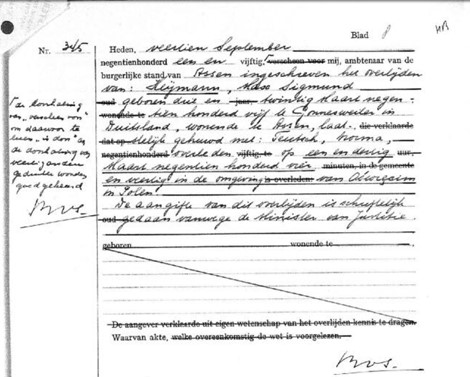 Blad 1
HR
Nr. 345
Heden, veertien September
negentienhonderd een en vijftig, verscheen voor mij, ambtenaar van de
burgerlijke stand van Assen ingeschreven het overlijden
van: Heymann, Max Sigmund
oud geboren drie en jaar, twintig Maart negen-
wonende te tien honderd vijf te Gonnesweiler in
Duitsland, wonende te Assen, laat- die verklaarde
dat op stelijk gehuwd met:
negentienhonderd overleden vijftig te op een en dertig uur
Maart negentien honderd vier minuten, in de gemeente
en veertig in de omgeving is overleden van
in Polen.
De aangifte van dit overlijden is schriftelijk
oud gedaan vanwege de Minister van Justitie.
geboren wonende te
De aangever verklaarde uit eigen wetenschap van het overlijden kennis te dragen.
Waarvan akte, welke overeenkomstig de wet is voorgelezen.
De doorhaling
van "verscheen voor"
en daarvoor te
lezen "is door" en
de doorhaling van
veertig andere
gedrukte woorden
goedgekeurd